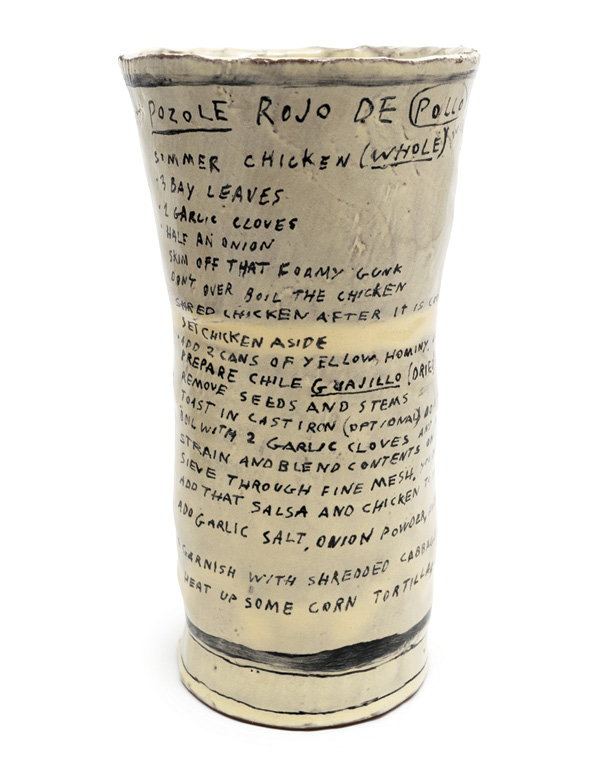 POZOLE ROJO DE POLLO
SIMMER CHICKEN (WHOLE)
· 3 BAY LEAVES
· 2 GARLIC CLOVES
· HALF AN ONION
SKIM OFF THAT FOAMY GUNK
DON'T OVER BOIL THE CHICKEN
SHRED CHICKEN AFTER IT IS
SET CHICKEN ASIDE
· ADD 2 CANS OF YELLOW HOMINY
PREPARE CHILE GUAJILLO (DRIED
REMOVE SEEDS AND STEMS
TOAST IN CAST IRON (OPTIONAL)
BOIL WITH 2 GARLIC CLOVES AND
STRAIN AND BLEND CONTENTS
SIEVE THROUGH FINE MESH.
ADD THAT SALSA AND CHICKEN
ADD GARLIC SALT, ONION POWDER,
GARNISH WITH SHREDDED CABBAGE
HEAT UP SOME CORN TORTILLAS